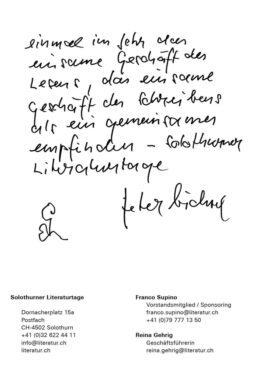 einmal im Jahr das
einsame Geschäft des
Lesens, das einsame
Geschäft des Schreibens
als ein gemeinsames
empfinden – Solothurner
Literaturtage
Peter Bichsel
Solothurner Literaturtage
Dornacherplatz 15a
Postfach
CH-4502 Solothurn
+41 (0)32 622 44 11
info@literatur.ch
literatur.ch
Franco Supino
Vorstandsmitglied / Sponsoring
franco.supino@literatur.ch
+41 (0)79 777 13 50
Reina Gehrig
Geschäftsführerin
reina.gehrig@literatur.ch